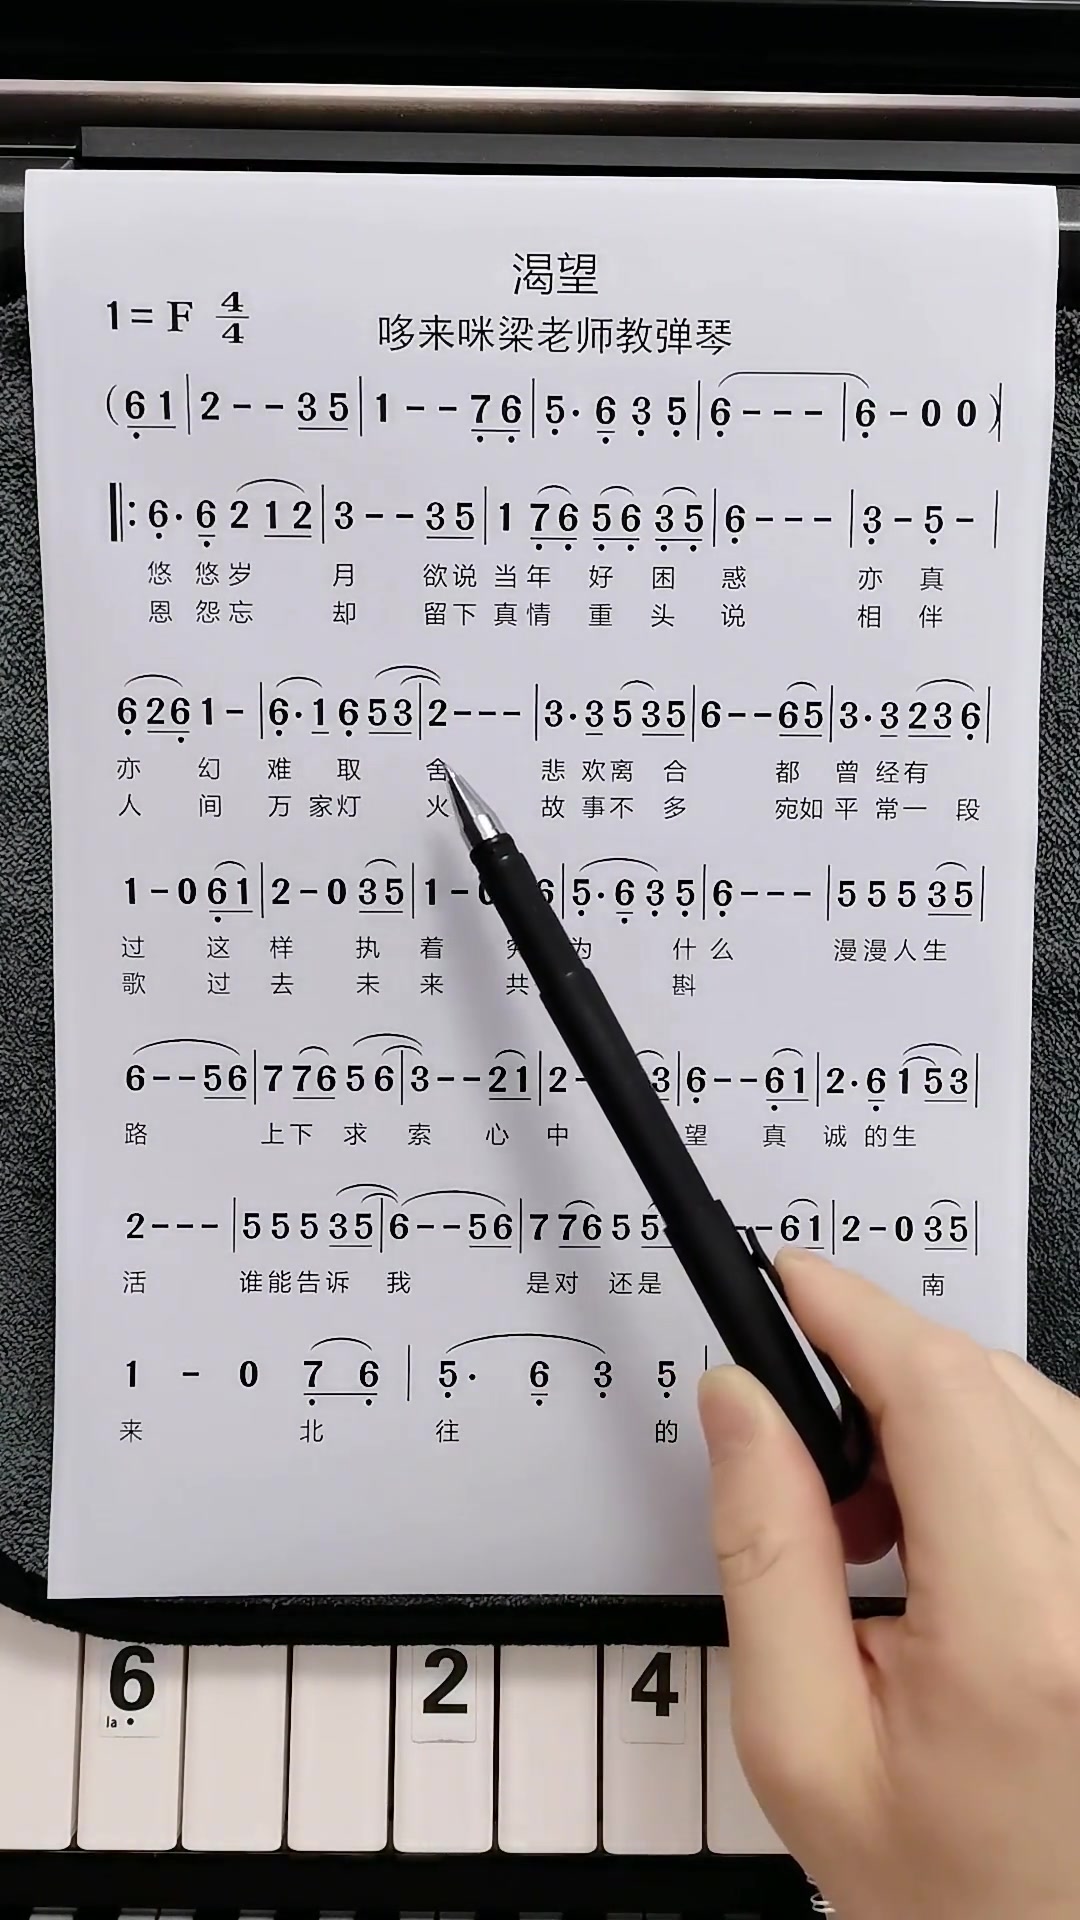 渴望
1=F 4/4
哆来咪梁老师教弹琴
(6 1|2 - - 3 5|1 - - 7 6|5· 6 3 5|6 - - -|6 - 0 0)
‖: 6· 6 2 1 2|3 - - 3 5|1 7 6 5 6 3 5|6 - - -|3 - 5 -|
悠 悠 岁 月 欲 说 当 年 好 困 惑 亦 真
恩 怨 忘 却 留 下 真 情 重 头 说 相 伴
6 2 6 1 -|6· 1 6 5 3|2 - - -|3· 3 5 3 5|6 - - 6 5|3· 3 2 3 6|
亦 幻 难 取 舍 悲 欢 离 合 都 曾 经 有
人 间 万 家 灯 火 故 事 不 多 宛 如 平 常 一 段
1 - 0 6 1|2 - 0 3 5|1 - 6|5· 6 3 5|6 - - -|5 5 5 3 5|
过 这 样 执 着 为 什 么 漫 漫 人 生
歌 过 去 未 来 共 斟
6 - - 5 6|7 7 6 5 6|3 - - 2 1|2 - 3|6 - - 6 1|2· 6 1 5 3|
路 上 下 求 索 心 中 望 真 诚 的 生
2 - - -|5 5 5 3 5|6 - - 5 6|7 7 6 5 5 - 6 1|2 - 0 3 5|
活 谁 能 告 诉 我 是 对 还 是 南
1 - 0 7 6|5· 6 3 5|
来 北 往 的
6 2 4
la